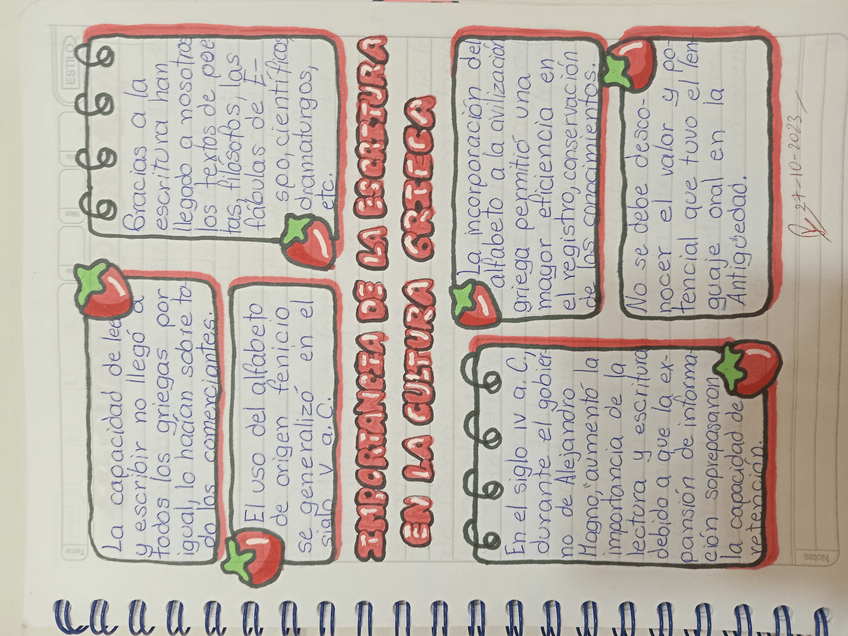 ESTILO
La capacidad de leer
y escribir no llegó a
todos los griegos por
igual, lo hacían sobre to-
do los comerciantes.
El uso del alfabeto
de origen fenicio
se generalizó en el
siglo V a.C.
Gracias a la
escritura han
llegado a nosotros
los textos de poe-
tas, filósofos, las
fábulas de E-
spo, científicos,
dramaturgos,
etc.
IMPORTANCIA DE LA ESCRITURA
EN LA CULTURA GRIEGA
En el siglo IV a.C,
durante el gobier-
no de Alejandro
Magno, aumentó la
importancia de la
lectura y escritura
debido a que la ex-
pansión de informa-
ción sobrepasaran
la capacidad de
retención.
La incorporación del
alfabeto a la civilización
griega permitió una
mayor eficiencia en
el registro, conservación
de los conocimientos.
No se debe desco-
nocer el valor y po-
tencial que tuvo el len-
guaje oral en la
Antigüedad.
27-10-2023
Notas